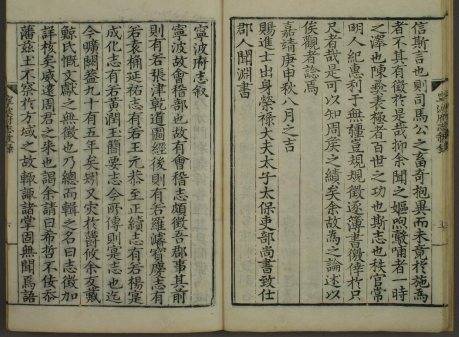 信斯言也則司馬公之畜奇抱異而未竟於施焉
者不其有徵於是哉抑余聞之嫗呴噢哺者一時
之澤也陳藝表極者百世之功也斯志也秩官常
明人紀惠利于無疆豈規規徵逐簿書徼倖於只
尺者哉是可以知周矦之績矣余故為之論述以
俟觀者諗焉
嘉靖庚申秋八月之吉
賜進士出身榮祿大夫太子太保吏部尚書致仕
郡人聞淵書
寧波府志敘
寧波故會稽郡也故有會稽志頗徵吾郡事其前
則有若張津乾道圖經後則有若羅濬寳慶志有
若袁桷延祐志有若王元恭至正續志有若楊寔
成化志有若黄潤玉簡要志今所傳則寔志也迄
今曠闕葢九十有五年矣
鯨氏慨文獻之無徵也乃總而輯之名曰志徵加
詳核矣咸遠周君之來也謁余請曰希哲不佞忝
藩茲土不察於方域之故輙諏諸鞏固無聞為語